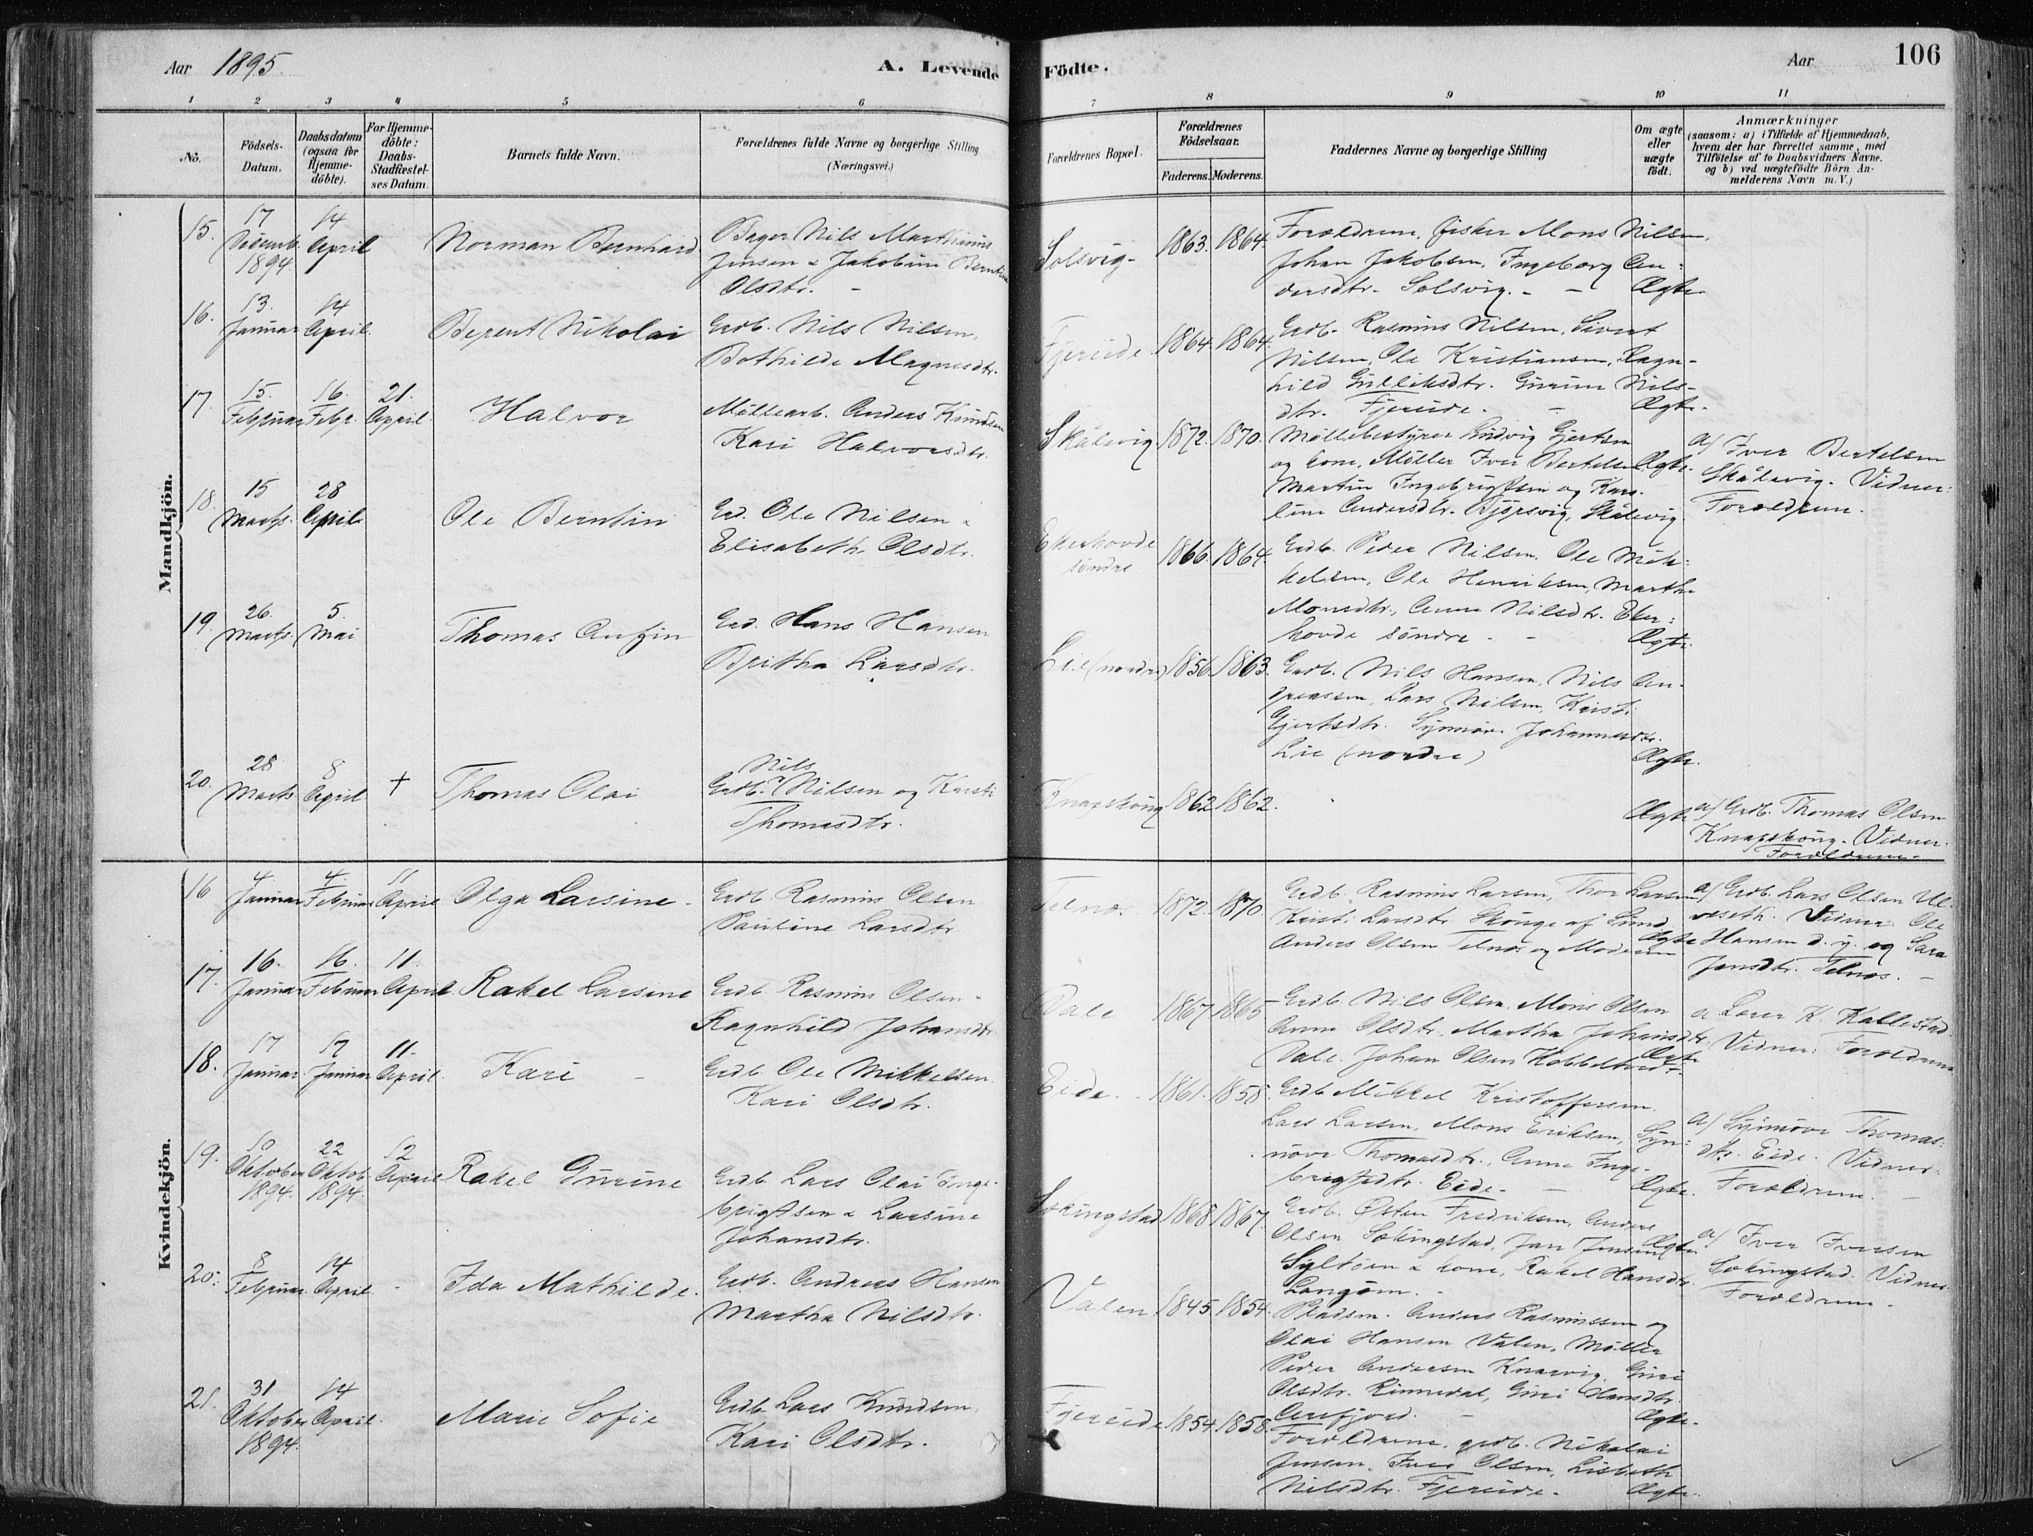 Aar 1895.
A. Levende
Födte.
Aar
106
1 2 3 4 5 6 7 8 9 10 11
No.
Födsels-
Datum.
Daabsdatum
(ogsaa for
Hjemme-
döbte).
For Hjemme-
döbte:
Daabs-
Stadfæstel-
ses Datum.
Barnets fulde Navn.
Forældrenes fulde Navne og borgerlige Stilling
(Næringsvei.)
Forældrenes Bopæl.
Forældrenes
Födselsaar.
Faderens. Moderens.
Faddernes Navne og borgerlige Stilling
Om ægte
eller
uægte
födt.
Anmærkninger
(saasom: a) i Tilfælde af Hjemmedaab,
hvem der har forrettet samme, med
Tilföielse af to Daabsvidners Navne.
og b) ved uægtefödte Börn An-
melderens Navn m. V.)
Mandkjön.
15. 17 Desemb. 1894
14 April
Norman Bernhard
Bager Nils Marthinus
Jensen & Jakobine Berntine
Olsdtr. -
Solsvig-
1863. 1864.
Forældrene, fisker Mons Nilsen,
Johan Jakobsen, Ingeborg An-
dersdtr. Solsvig. - - Ægte
16. 13. Januar
14 April.
Berent Nikolai
Grdb. Nils Nilsen,
Bothilde Magnesdtr.
Fjereide
1864. 1864.
Grdb. Rasmus Nilsen, Sivert
Nilsen, Ole Kristiansen, Ragn-
hild Gulliksdtr. Gurine Nils-
dtr. Fjereide. - Ægte.
17. 15. Februar
16. Febr.
21. April.
Halvor
Möllearb. Anders Knudsen
Kari Halvorsdtr.
Skålevig.
1872. 1870.
Möllebestyrer Ludvig Gjertsen
og kone, Möller Iver Bertelsen Ægte.
Martin Ingebrigtsen og Karo-
line Andersdtr. Björsvig, Skålevig.
a) Iver Bertelsen
Skålevig. Vidner:
Forældrene.
18. 15 Marts.
28 April
Ole Berntin
Grd. Ole Nilsen &
Elisabeth Olsdtr.
Ekerhovde
söndre
1866. 1864.
Grdb. Peder Nilsen, Ole Mik-
kelsen, Ole Henriksen, Martha
Monsdtr., Anna Nilsdtr. Eker-
hovde söndre - - Ægte.
19. 26. Marts.
5. Mai
Thomas Anfin
Grd. Hans Hansen
Britha Larsdtr.
Lie (nordre)
1856. 1863.
Grdb. Nils Hansen, Nils An-
dreassen, Lars Nilsen, Kirsti
Gjertsdtr. Synnöve Johannesdtr.
Lie (nordre) Ægte.
20. 28 Marts
8 April.
+
Thomas Olai
Nils
Grdb. Nilsen og Kirsti
Thomasdtr.
Knapskoug
1862 1862.
Ægte
a) Grdb. Thomas Olsen
Knapskoug. Vidner.
Forældrene.
Kvindekjön.
16 4. Januar
4. Februar
11 April
Olga Larsine -
Grdb Rasmus Olsen
Pauline Larsdtr
Telnæs
1872. 1870.
Grdb. Rasmus Larsen, Thor Larsen
Kirsti Larsdtr. Skouge af Sund
Anders Olsen Telnæs og Moderen Ægte
a) Grdb. Lars Olsen Ul-
veseth. Vidner: Ole
Hansen d. y. og Sara
Jansdtr. Telnæs. -
17. 16. Januar
16. Februar
11. April.
Rakel Larsine
Grdb. Rasmus Olsen -
Ragnhild Johansdtr
Dale
1867 1865
Grdb. Nils Olsen. Mons Olsen
Anna Olsdtr. Martha Johansdtr
Dale. Johan Olsen Kobbeltveit Ægte
a. Lærer K. Kallestad.
Vidner: Forældrene
18. 17 Januar
17 Januar
11. April.
Kari -
Grdb Ole Mikkelsen
Kari Olsdtr.
Eide. -
1861. 1858.
Grdb Mikkel Kristoffersen
Lars Larsen, Mons Eriksen, Syn-
növe Thomasdtr., Anna Inge-
brigtsdtr. Eide. - Ægte.
a) Synnöve Thomas-
dtr. Eide. Vidner:
Forældrene. -
19. 10 Oktober 1894.
22 Oktob. 1894.
12 April
Rakel Gurine
Grdb Lars Olai Inge-
brigtsen & Larsine
Johansdtr.
Sekingstad
1868 1867.
Grdb. Østen Fredriksen, Anders
Olsen Sekingstad, Jan Jensen Ægte
Syltöen & kone, Rakel Hansdtr.
Langöen. -
a) Iver Iversen
Sekingstad. Vidner
Forældrene -
20. 8 Februar.
14 April
-
Ida Mathilde.
Grdb. Andreas Hansen
Martha Nilsdtr.
Valen
1845. 1854.
Pladsm. Anders Rasmussen og
Olai Hansen Valen, Möller
Peder Andersen Knarvig, Guri
Olsdtr. Rinnedal, Guri Hansdtr.
Arefjord. - Ægte.
21. 31 Oktober 1894.
14 April.
Marie Sofie
Grdb Lars Knudsen,
Kari Olsdtr.
Fjereide
1854. 1858.
Forældrene, grdb. Nikolai
Jensen, Iver Olsen, Lisbeth
Nilsdtr. Fjereide. - Ægte.